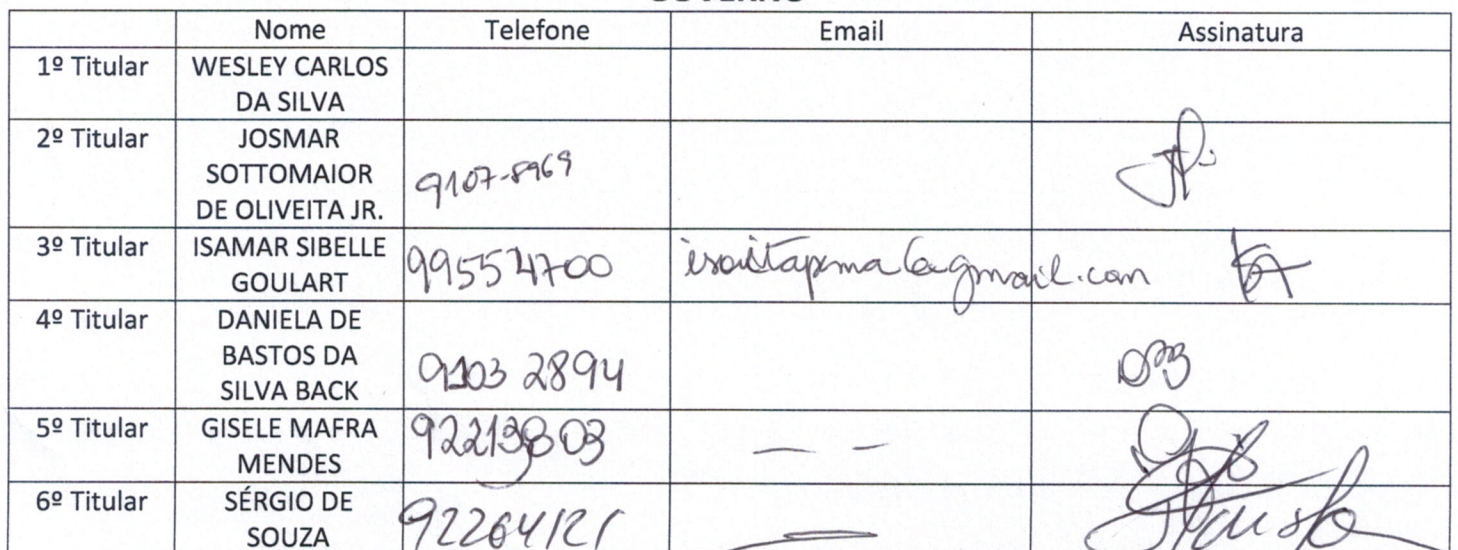 GOVERNO
Nome Telefone Email Assinatura
1º Titular WESLEY CARLOS
DA SILVA
2º Titular JOSMAR
SOTTOMAIOR
DE OLIVEITA JR.
9107-8969
3º Titular ISAMAR SIBELLE
GOULART
99554700
4º Titular DANIELA DE
BASTOS DA
SILVA BACK
9103 2894
5º Titular GISELE MAFRA
MENDES
6º Titular SÉRGIO DE
SOUZA
92264121